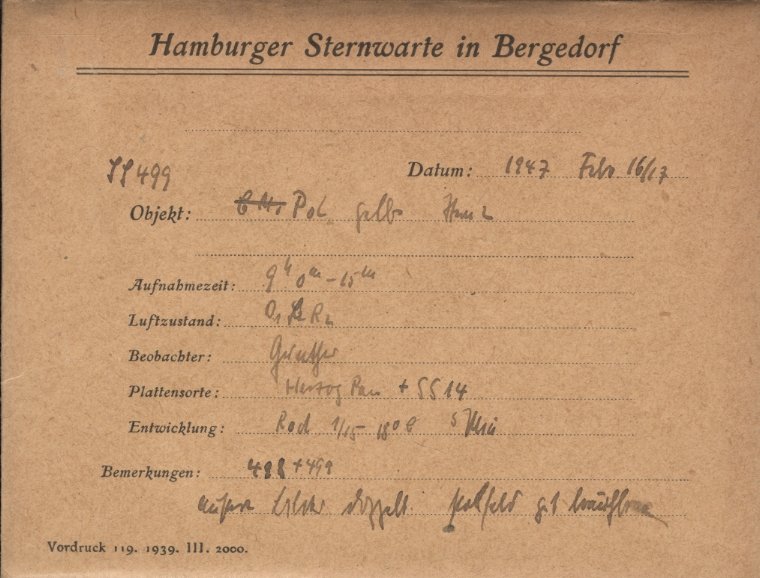 Hamburger Sternwarte in Bergedorf
499
Datum: 1947 Febr 16/17
Objekt: Pol. gelb
Aufnahmezeit: 9h 0m - 15m
Luftzustand:
Beobachter:
Plattensorte: Herzog Pan + SS 14
Entwicklung: Rod 1/15 18°C 5 Min
Bemerkungen: 498 + 499
doppelt. Polfeld gut brauchbar
Vordruck 119. 1939. III. 2000.